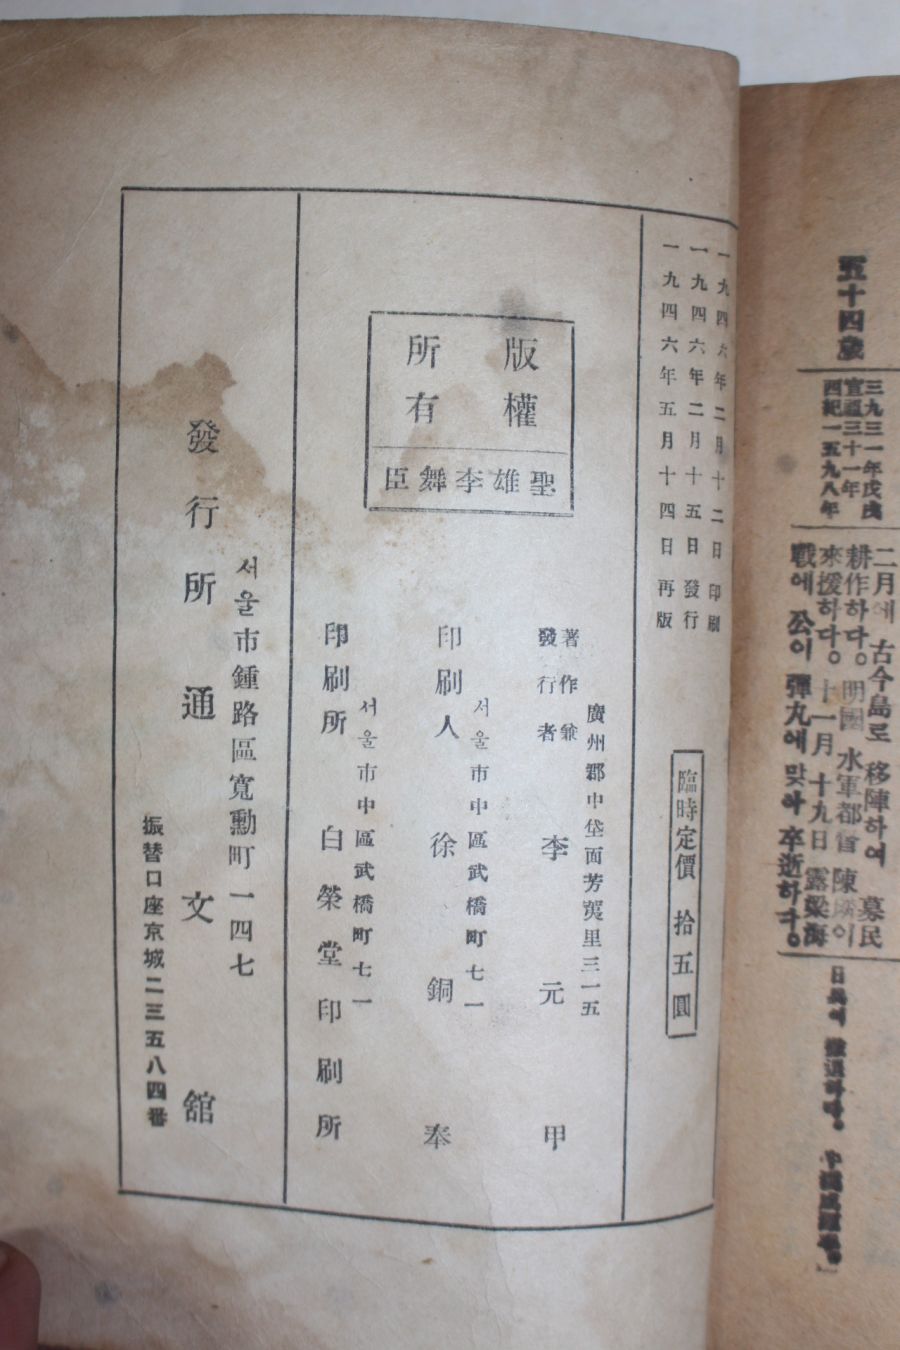 五十四歲
三九三一年戊戌
宣祖三十一年
西紀一五九八年
二月에 古今島로 移陣하여 募民
耕作하다。明國 水軍都督 陳璘이
來援하다。十一月 十九日 露梁海
戰에 公이 彈丸에 맞아 卒逝하다。
一九四六年二月十二日印刷
一九四六年二月十五日發行
一九四六年五月十四日再版
臨時定價 拾五圓
版權
所有
聖雄李舞臣
廣州郡中垈面芳荑里三一五
著作兼
發行者 李元甲
서울市中區武橋町七一
印刷人 徐銅奉
서울市中區武橋町七一
印刷所 白榮堂印刷所
서울市鍾路區寬勳町一四七
發行所 通文舘
振替口座京城二三五八四番